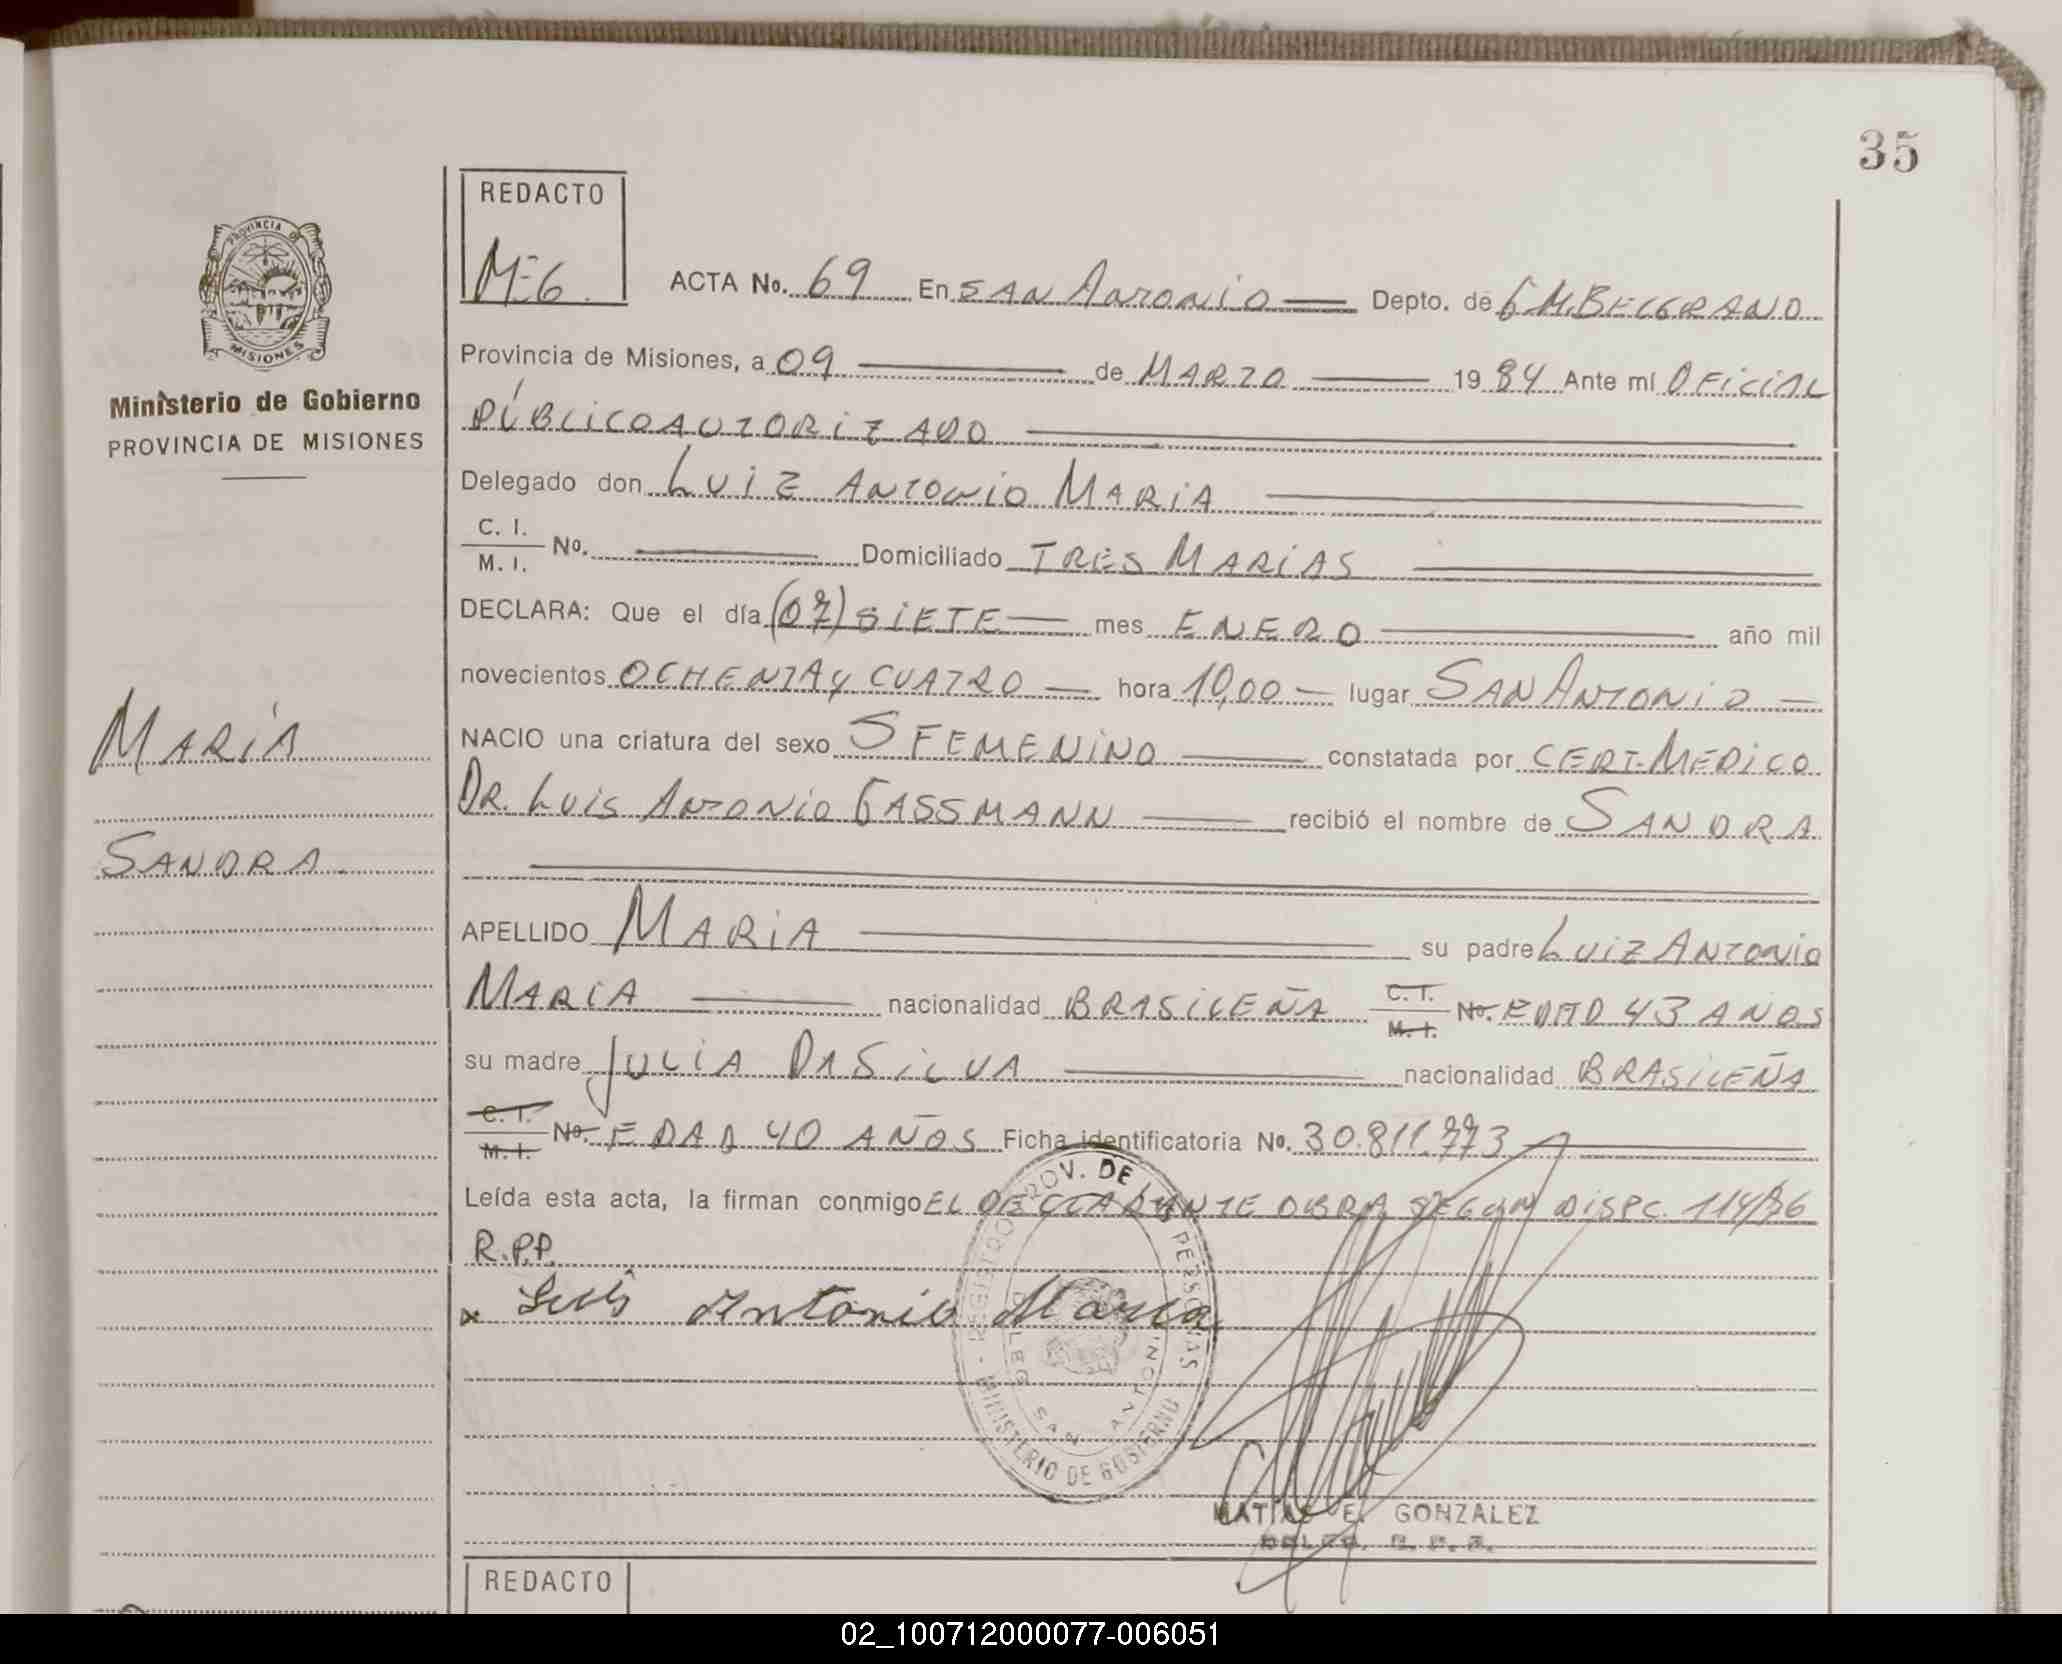 35
REDACTO
M-E6.
PROVINCIA DE
MISIONES
Ministerio de Gobierno
PROVINCIA DE MISIONES
MARIA
SANDRA.
ACTA No. 69 En SAN ANTONIO Depto. de G.M.BELGRANO
Provincia de Misiones, a 09 de MARZO 1984 Ante mí OFICIAL
PÚBLICO AUTORIZADO
Delegado don LUIZ ANTONIO MARIA
C. I. M. I. No. Domiciliado TRES MARIAS
DECLARA: Que el día (07) SIETE mes ENERO año mil
novecientos OCHENTA Y CUATRO hora 10,00 lugar SAN ANTONIO
NACIO una criatura del sexo S FEMENINO constatada por CERT. MEDICO
DR. LUIS ANTONIO GASSMANN recibió el nombre de SANDRA
APELLIDO MARIA su padre LUIZ ANTONIO
MARIA nacionalidad BRASILEÑA C. I. M. I. No. EDAD 43 AÑOS
su madre JULIA DA SILVA nacionalidad BRASILEÑA
C. I. M. I. No. EDAD 40 AÑOS Ficha identificatoria No. 30.811.773
Leída esta acta, la firman conmigo EL DECLARANTE OBRA SEGUN DISPC. 114/76
R.P.P.
x Luis Antonio Maria
REGISTRO PROV. DE LAS PERSONAS - MINISTERIO DE GOBIERNO -
DELEG. SAN ANTONIO
MATIAS E. GONZALEZ
REDACTO
02_100712000077-006051